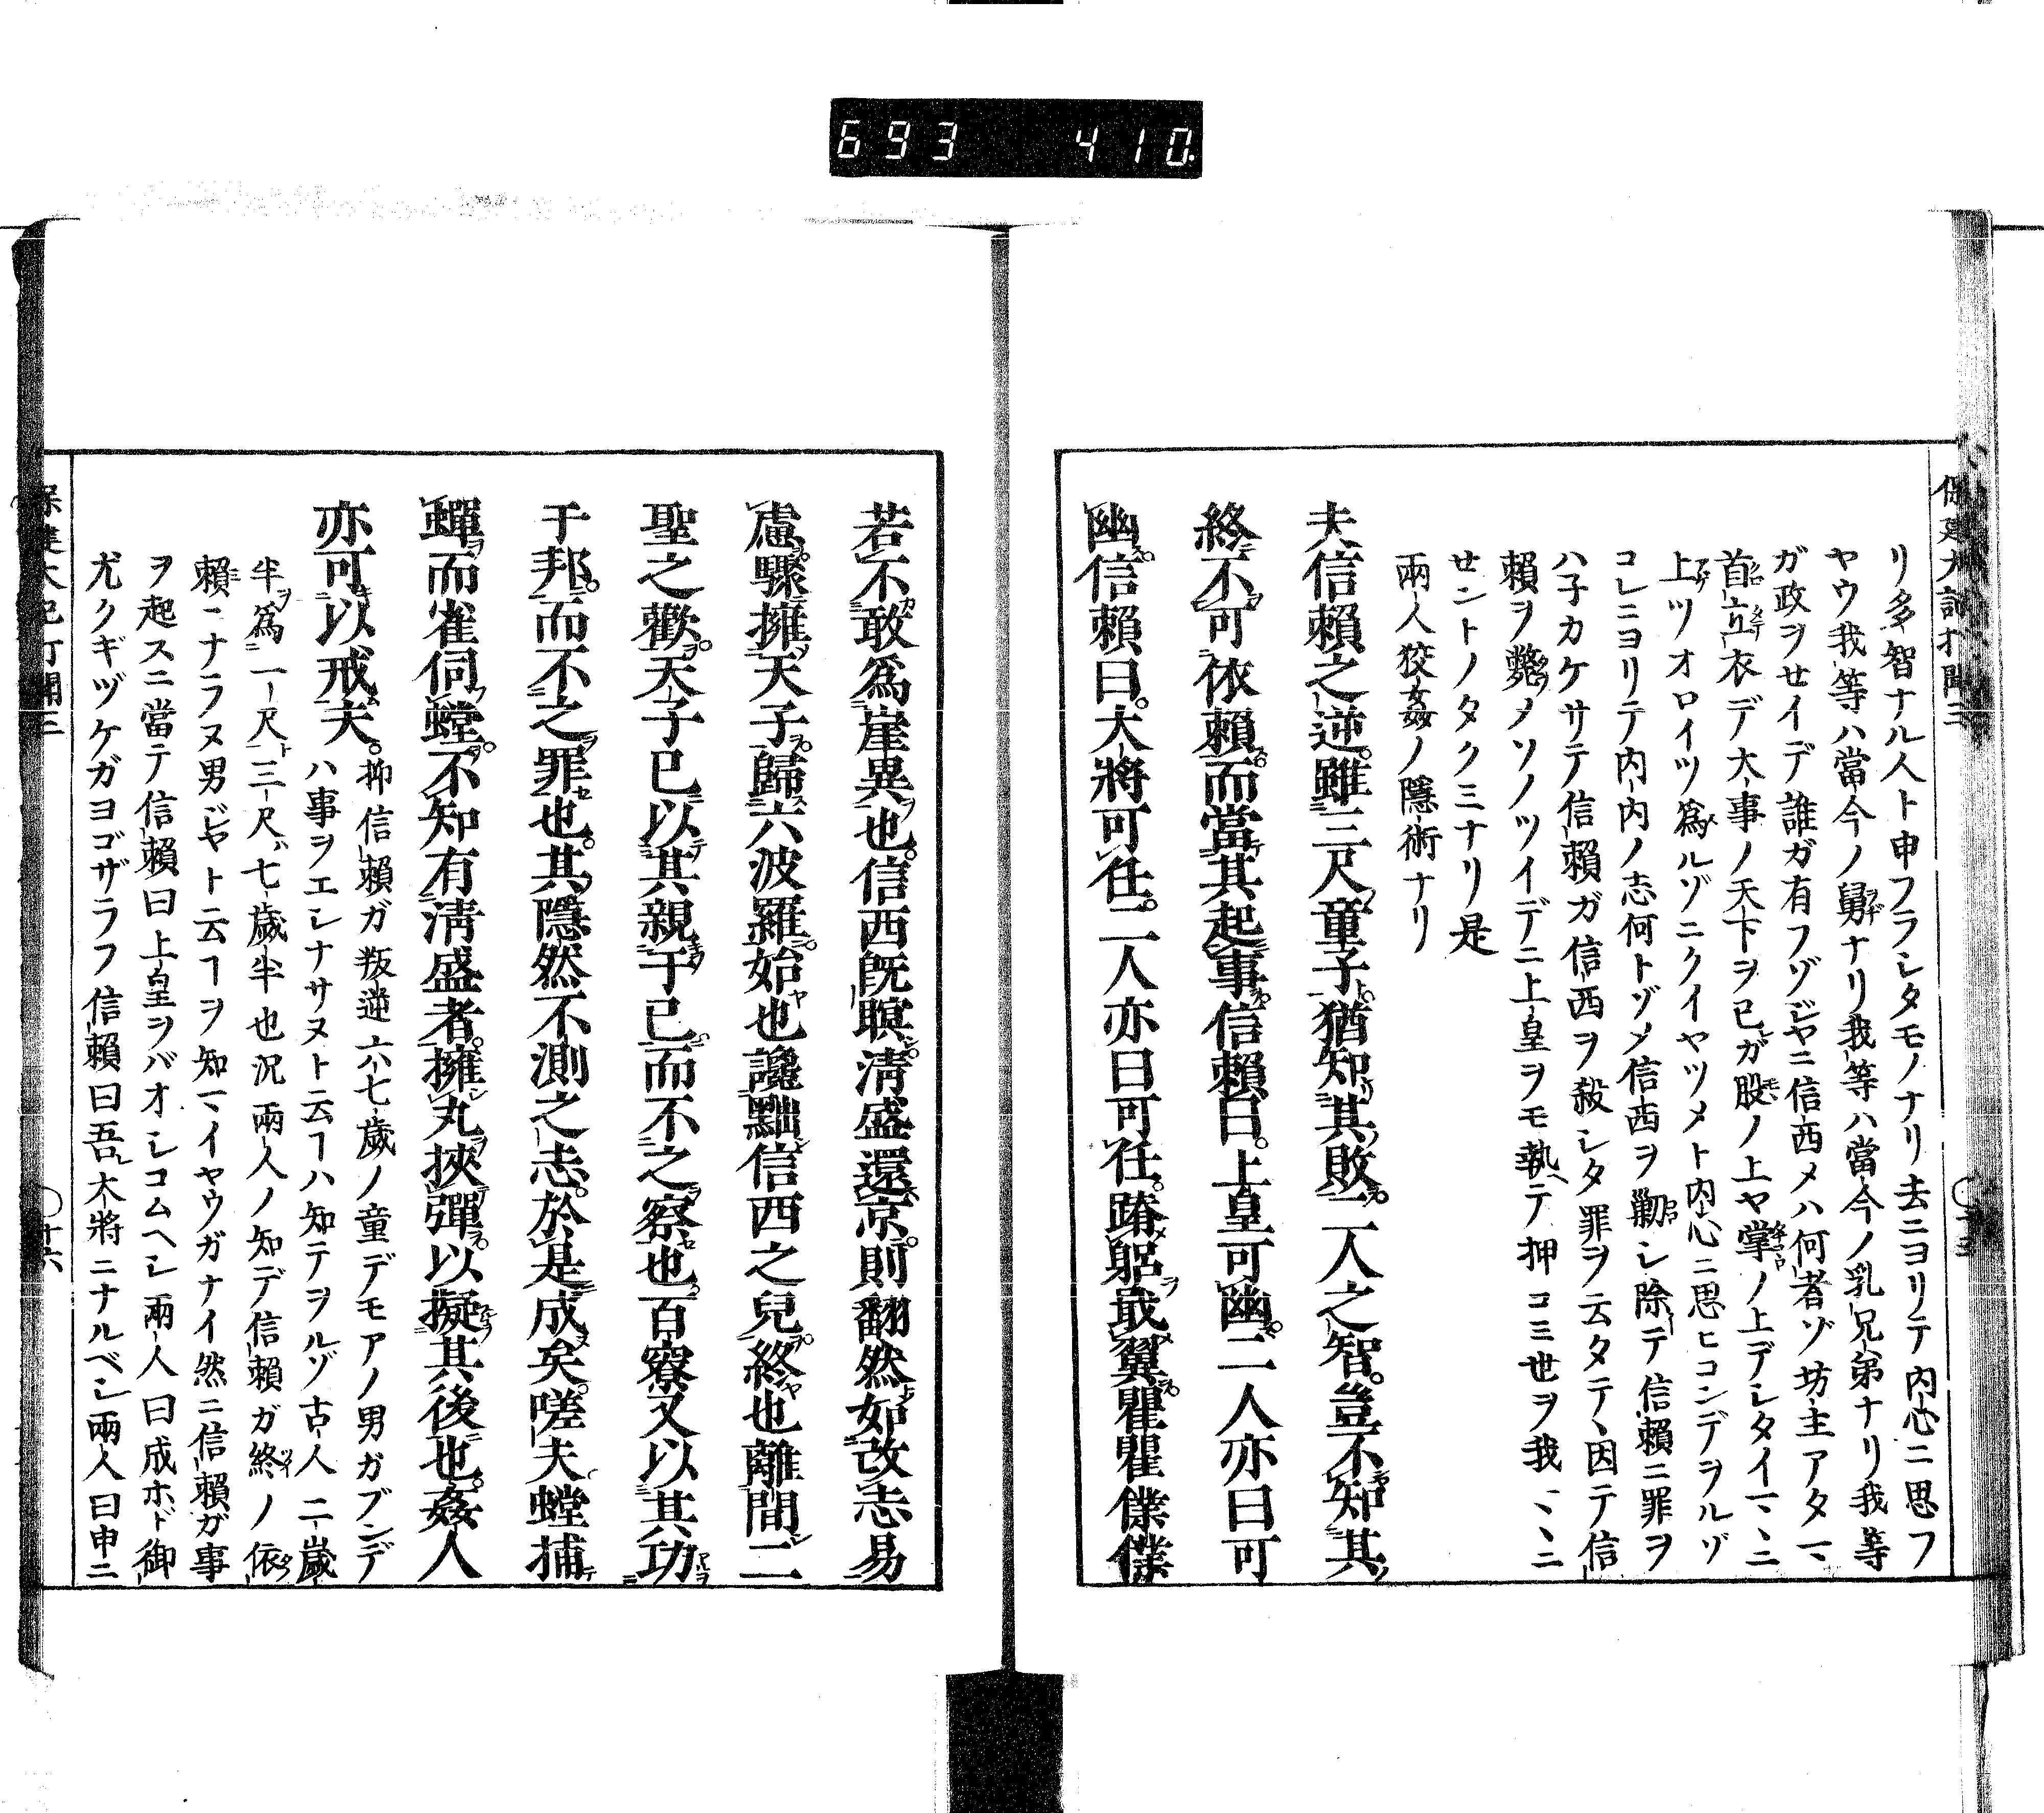 693 410
保建大記打聞三
リ多智ナル人ト申フラレタモノナリ去ニヨリテ内心ニ思フ
ヤウ我等ハ當今ノ舅ナリ我等ハ當今ノ乳兄弟ナリ我等
ガ政ヲセイデ誰ガ有フゾジャニ信西メハ何者ゾ坊主アタマ
首立衣デ大事ノ天下ヲ己ガ股ノ上ヤ掌ノ上デシタイマヽニ
上ツオロイツ爲ルゾニクイヤツメト内心ニ思ヒコンデヲルゾ
コレニヨリテ内内ノ志何トゾメ信西ヲ勦シ除テ信賴ニ罪ヲ
ハ子カケサテ信賴ガ信西ヲ殺シタ罪ヲ云タテヽ因テ信
賴ヲ斃メソノツイデニ上皇ヲモ執テ押コミ世ヲ我マヽニ
せントノタクミナリ是
兩人狡姦ノ隱術ナリ
夫信賴之逆。雖三尺童子猶知其敗。二人之智。豈不知其
終不可依賴。而當其起事。信賴曰。上皇可幽。二人亦曰可
幽。信賴曰。大將可任。二人亦曰可任。蹐躬戢翼。瞿瞿僕僕
若不敢爲崖異也。信西旣殞。淸盛還京。則翻然如改志易
慮。驟擁天子。歸六波羅。始也讒黜信西之兒。終也離間二
聖之歡。天子已以其親于己。而不之察也。百寮又以其功
于邦。而不之罪也。其隱然不測之志。於是成矣。嗟夫螳捕
蟬。而雀伺螳。不知有淸盛者。擁丸挾彈。以擬其後也。姦人
亦可以戒夫。抑信賴ガ叛逆六七歲ノ童デモアノ男ガブンデ
ハ事ヲエシナサヌト云ヿハ知テヲルゾ古人二歲
半爲一尺三尺ハ七歲半也況兩人ノ知デ信賴ガ終ノ依
賴ニナラヌ男ジャト云ヿヲ知マイヤウガナイ然ニ信賴ガ事
ヲ起スニ當テ信賴曰上皇ヲバオシコムヘシ兩人曰成ホド御
尤クギヅケガヨゴザラフ信賴曰吾大將ニナルベシ兩人曰申ニ
保建大記打聞三
〇十六